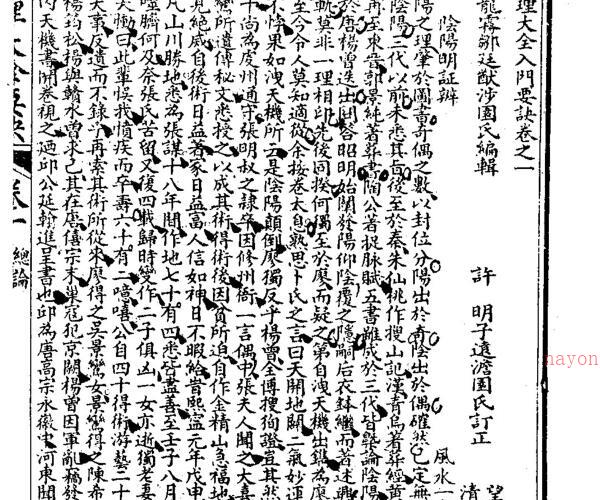 理大全入門要訣卷之一
龍霧鄒廷猷涉園氏編輯
許明子遠澹園氏訂正
望
清
陰陽明証辨
風水一
陽之理肇於圖書奇偶之數以卦位分陽出於奇陰出於偶確然已定無
陰陽三代以前未悉其旨後至於秦朱仙桃作搜山記漢青烏著葬經黃
再至東晉郭景純著葬書陶公著捉脉賦五書雖成於三代皆槩論陰陽
於唐楊曾迭出圖書昭明始闡發陽仰陰覆之隱嗣后衣鉢繼而著述興
軌莫非一理相印先後同揆何獨至於廖而疑之第自洩天機出鐫為廖
至今令人莫知適從余按卷太息熟思卜氏之言曰天開地闢二氣妙運
不悖果如洩天機所云是陰陽顛倒廖獨反乎楊曾全傳搜狗證宜其然
十尚為虔州通守張明叔之隸卒因修州衙一言偶中張夫人聞之大喜
鸞所遺傳秘文悉授之以成其術得術後因貧所迫自作金精山急福地
見絕自後術日益著家日益富人信如神日不暇給元年戊申
凡山川勝地悉為張謀十八年間作地七十有四悉皆盡善至壬子八月
噬臍何及奈張氏苦留又後四載歸時變作二子俱凶一女亦逝獨老妻
夫慟曰此輩悞我憤疾而卒壽六十有二噫嘻公自四十得術游藝二十
大事乃遺而不錄乎再索其術所從來廖得之吳景鸞女景鸞得之陳希
楊筠松楊與贛水曾求己其在唐僖宗末巢寇犯京闕楊曾因軍亂竊發
内天機書開卷視之廼邱公延翰進呈書也邱為唐高宗永徽中河東聞
理大全要訣 卷一 總論
nayon